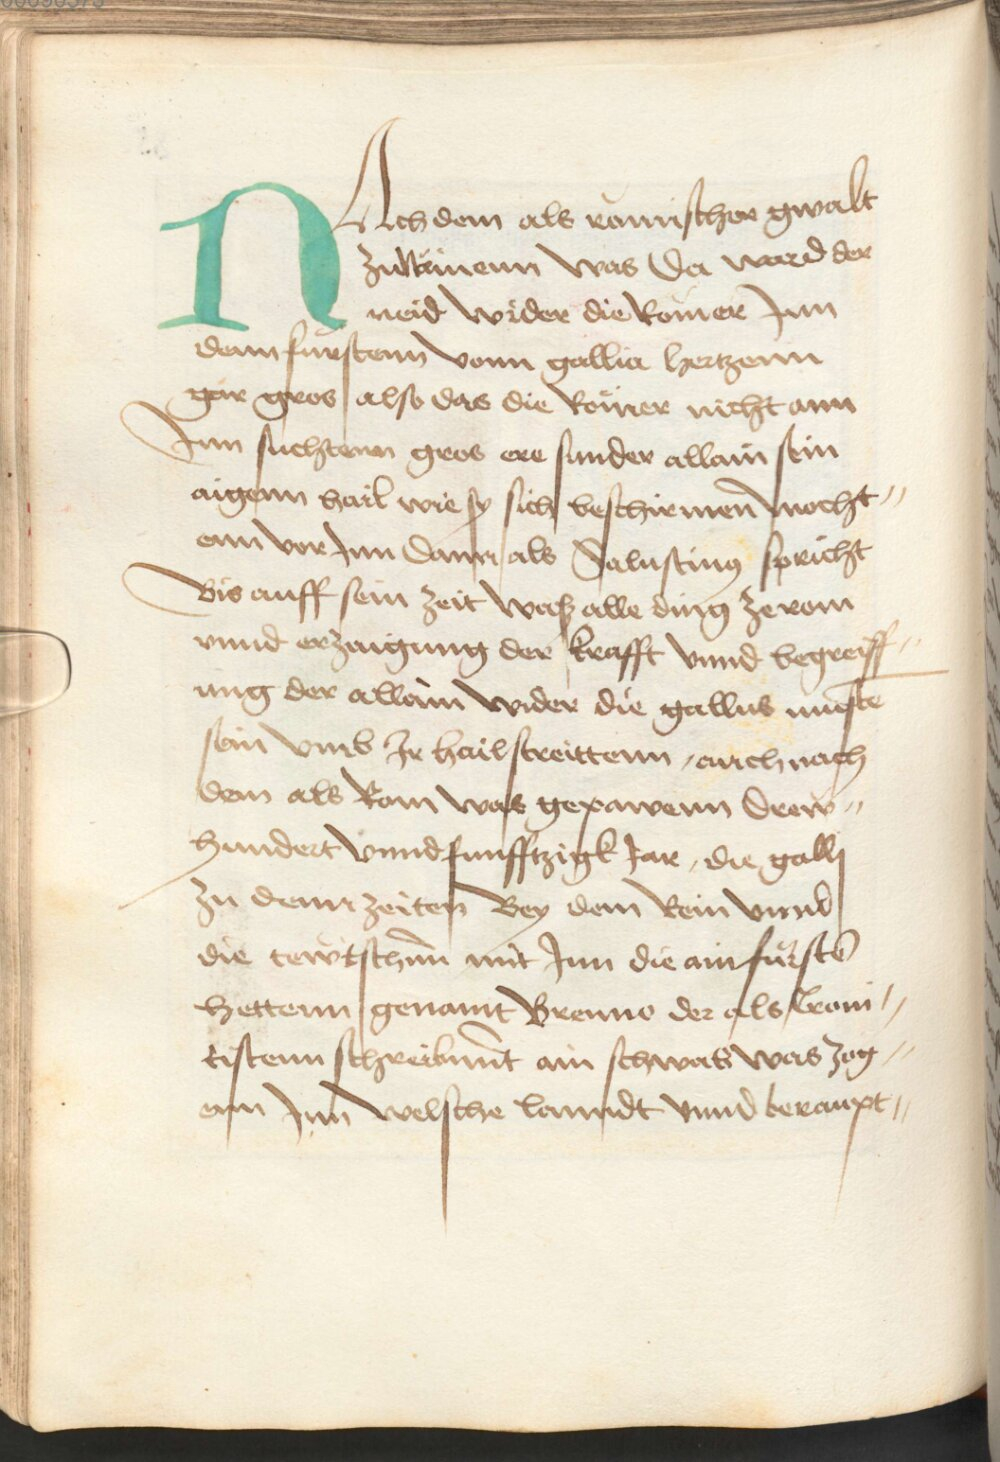 NAch dem als römischer gwalt
zukömenn was Da ward der
neid wider die Römer Jnn
denn fürstenn vonn gallia hertzenn
gar gros also das die Römer nicht ann
Jnn suchtenn gros ere sunder allain sein
aigenn hail wie sy sich beschirmen mocht〃
enn vor Jnn Dann als Salustius spricht
Bis auff sein zeit was alle ding ze rom
vnnd erzaigung der krafft vnnd begreiff〃
ung der allain wider die gallus mueste
sein vmb Jr hail streittenn, auch nach
dem als Rom was gepawenn Drew〃
hundert vnnd funfftzigk Jar, die galli
zu denn zeiten Bey dem Rein vnnd
die tewtschen mit Jnn die ain fürsten
hettenn genannt Brenno der als Croni〃
cistenn schreibennt ain schwab was zog〃
enn Jnn welsche lanndt vnnd beraupt〃